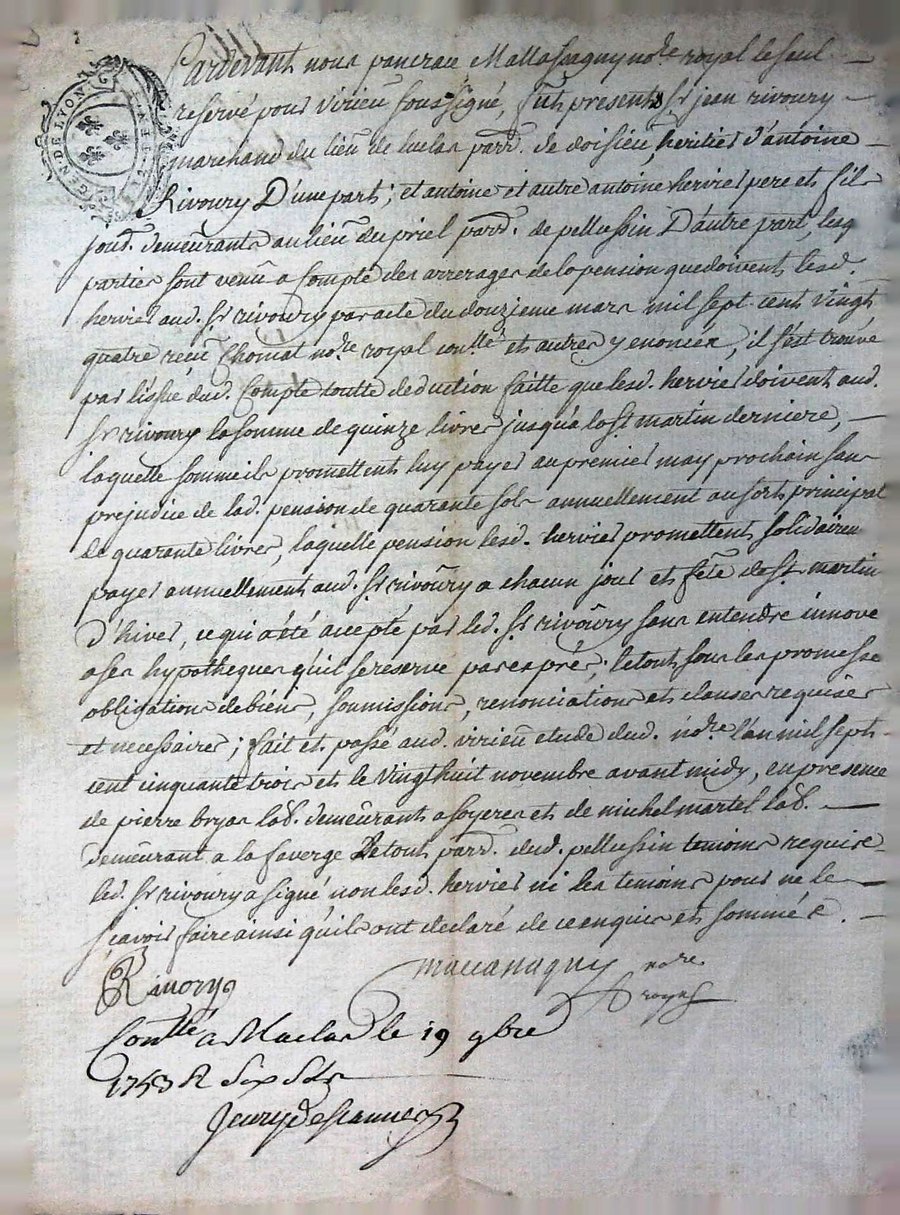 GEN. DE LYON
Pardevant nous pancrace Mallassagny no.re royal le seul
reservé pour virieu soussigné, fut present Sr jean rivoury
marchand du lieu de luclas parr. de doisieu, heritier d'antoine
Rivoury D'une part; et antoine et autre antoine hervier pere et fils
jourd. demeurants au lieu du priel parr. de pellussin D'autre part, lesq
parties sont venu a compte des arrerages de la pension que doivent lesd.
hervier aud. Sr rivoury par acte du douzieme mars mil sept cent vingt
quatre reçu Chomat no.re royal con.llé et autres y enoncés, il s'est trouve
par l'issue dud. Compte toutte deduction faitte que lesd. hervier doivent aud.
Sr rivoury la somme de quinze livres jusqu'a la St martin derniere,
laquelle somme ils promettent luy payer au premier may prochain sans
prejudice de lad. pension de quarante sols annuellement au sort principal
de quarante livres, laquelle pension lesd. hervier promettent solidairem
payer annuellement aud. Sr rivoury a chacun jour et fête de St martin
D'hiver, ce qui a été accepté par led. Sr rivoury sans entendre innove
a ses hypotheques qu'il se reserve par exprés; le tout sous les promesse
obligations de biens, soumissions, renonciations et clauses requises
et necessaires; fait et passé aud. virieu etude dud. no.re l'an mil sept
cent cinquante trois et le vingt huit novembre avant midy, en presence
de pierre bryas lab. demeurant a soyeres et de michel martel lab.
demeurant a la faverge de tout parr. dud. pellussin temoins requis
led. Sr rivoury a signé non lesd. hervier ni les temoins pour ne le
sçavoir faire ainsi qu'ils ont declaré de ce enquis et sommés.
Rivory
no.re
royal
Con.llé a Maclas le 19 9bre
1753 R Six Sols